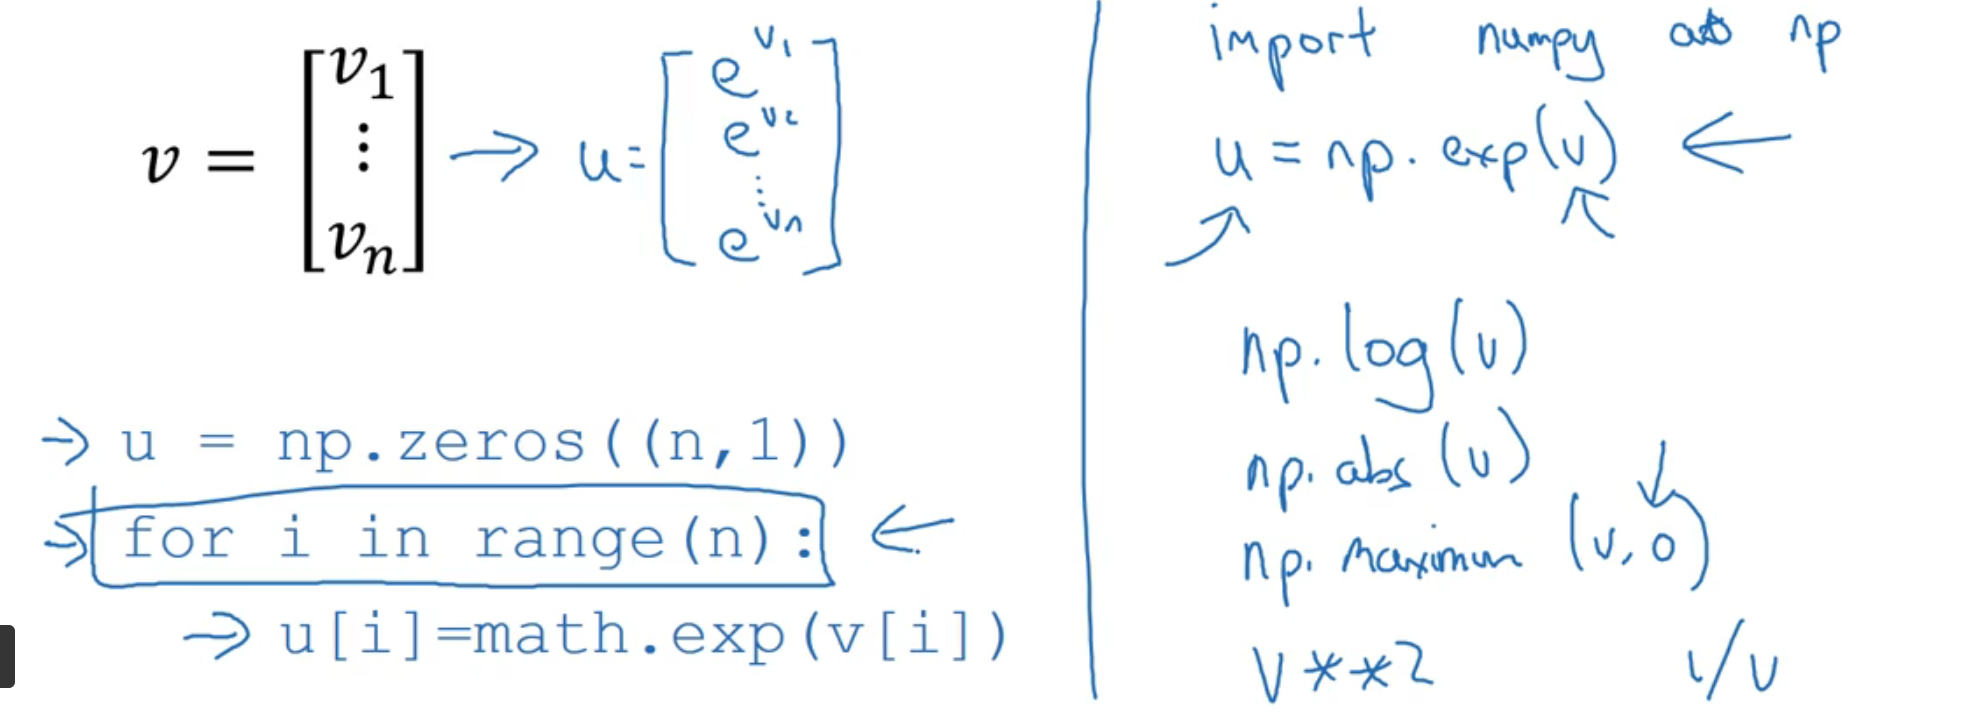 v = [v1 ⋮ vn] → u = [e^v1 e^v2 ⋮ e^vn]
→ u = np.zeros((n,1))
→ for i in range(n): ←
→ u[i]=math.exp(v[i])
import numpy as np
u = np.exp(v) ←
np.log(v)
np.abs(v)
np.maximum(v, 0)
v**2 1/v